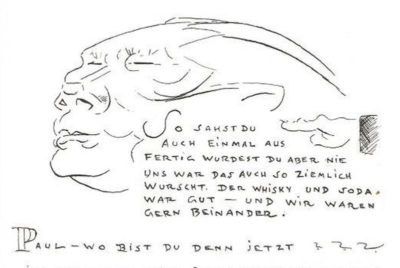 SO SAHST DU
AUCH EINMAL AUS
FERTIG WURDEST DU ABER NIE
UNS WAR DAS AUCH SO ZIEMLICH
WURSCHT. DER WHISKY UND SODA.
WAR GUT – UND WIR WAREN
GERN BEINANDER.
PAUL – WO BIST DU DENN JETZT ? ? ?.